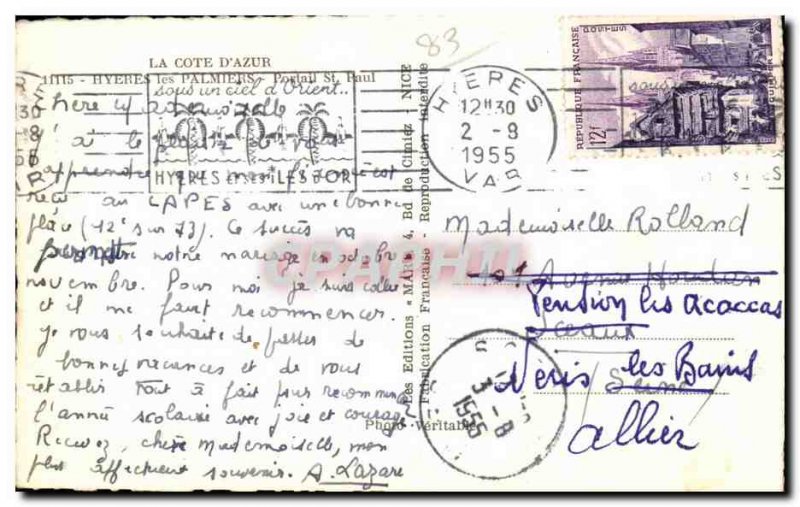 LA COTE D'AZUR
11115 - HYERES les PALMIERS - Portail St. Paul
sous un ciel d'Orient..
HYERES et ses ILES D'OR
Chère Mademoiselle
J'ai le plaisir de vous
apprendre que mon fiancé est
reçu au CAPES avec une bonne
place (12e sur 73). Ce succès va
permettre notre mariage en octobre
novembre. Pour moi je suis collée
et il me faut recommencer.
Je vous souhaite de
bonnes vacances et de vous
rétablir tout à fait pour recommencer
l'année scolaire avec joie et courage
Recevez, chère Mademoiselle, mon
plus affectueux souvenir. A. Lazare
Les Editions « MAR » 4, Bd de Cimiez - NICE
Fabrication Française - Reproduction Interdite
Photo Véritable
83
HYERES
12H30
2 - 8
1955
VAR
REPUBLIQUE FRANÇAISE
POSTES
12F
Mademoiselle Rolland
Avenue Houdan
Pension les Acaccas
Sceaux
Neris les Bains
(Seine)
Allier
3 - 8
1955
CPACHIL